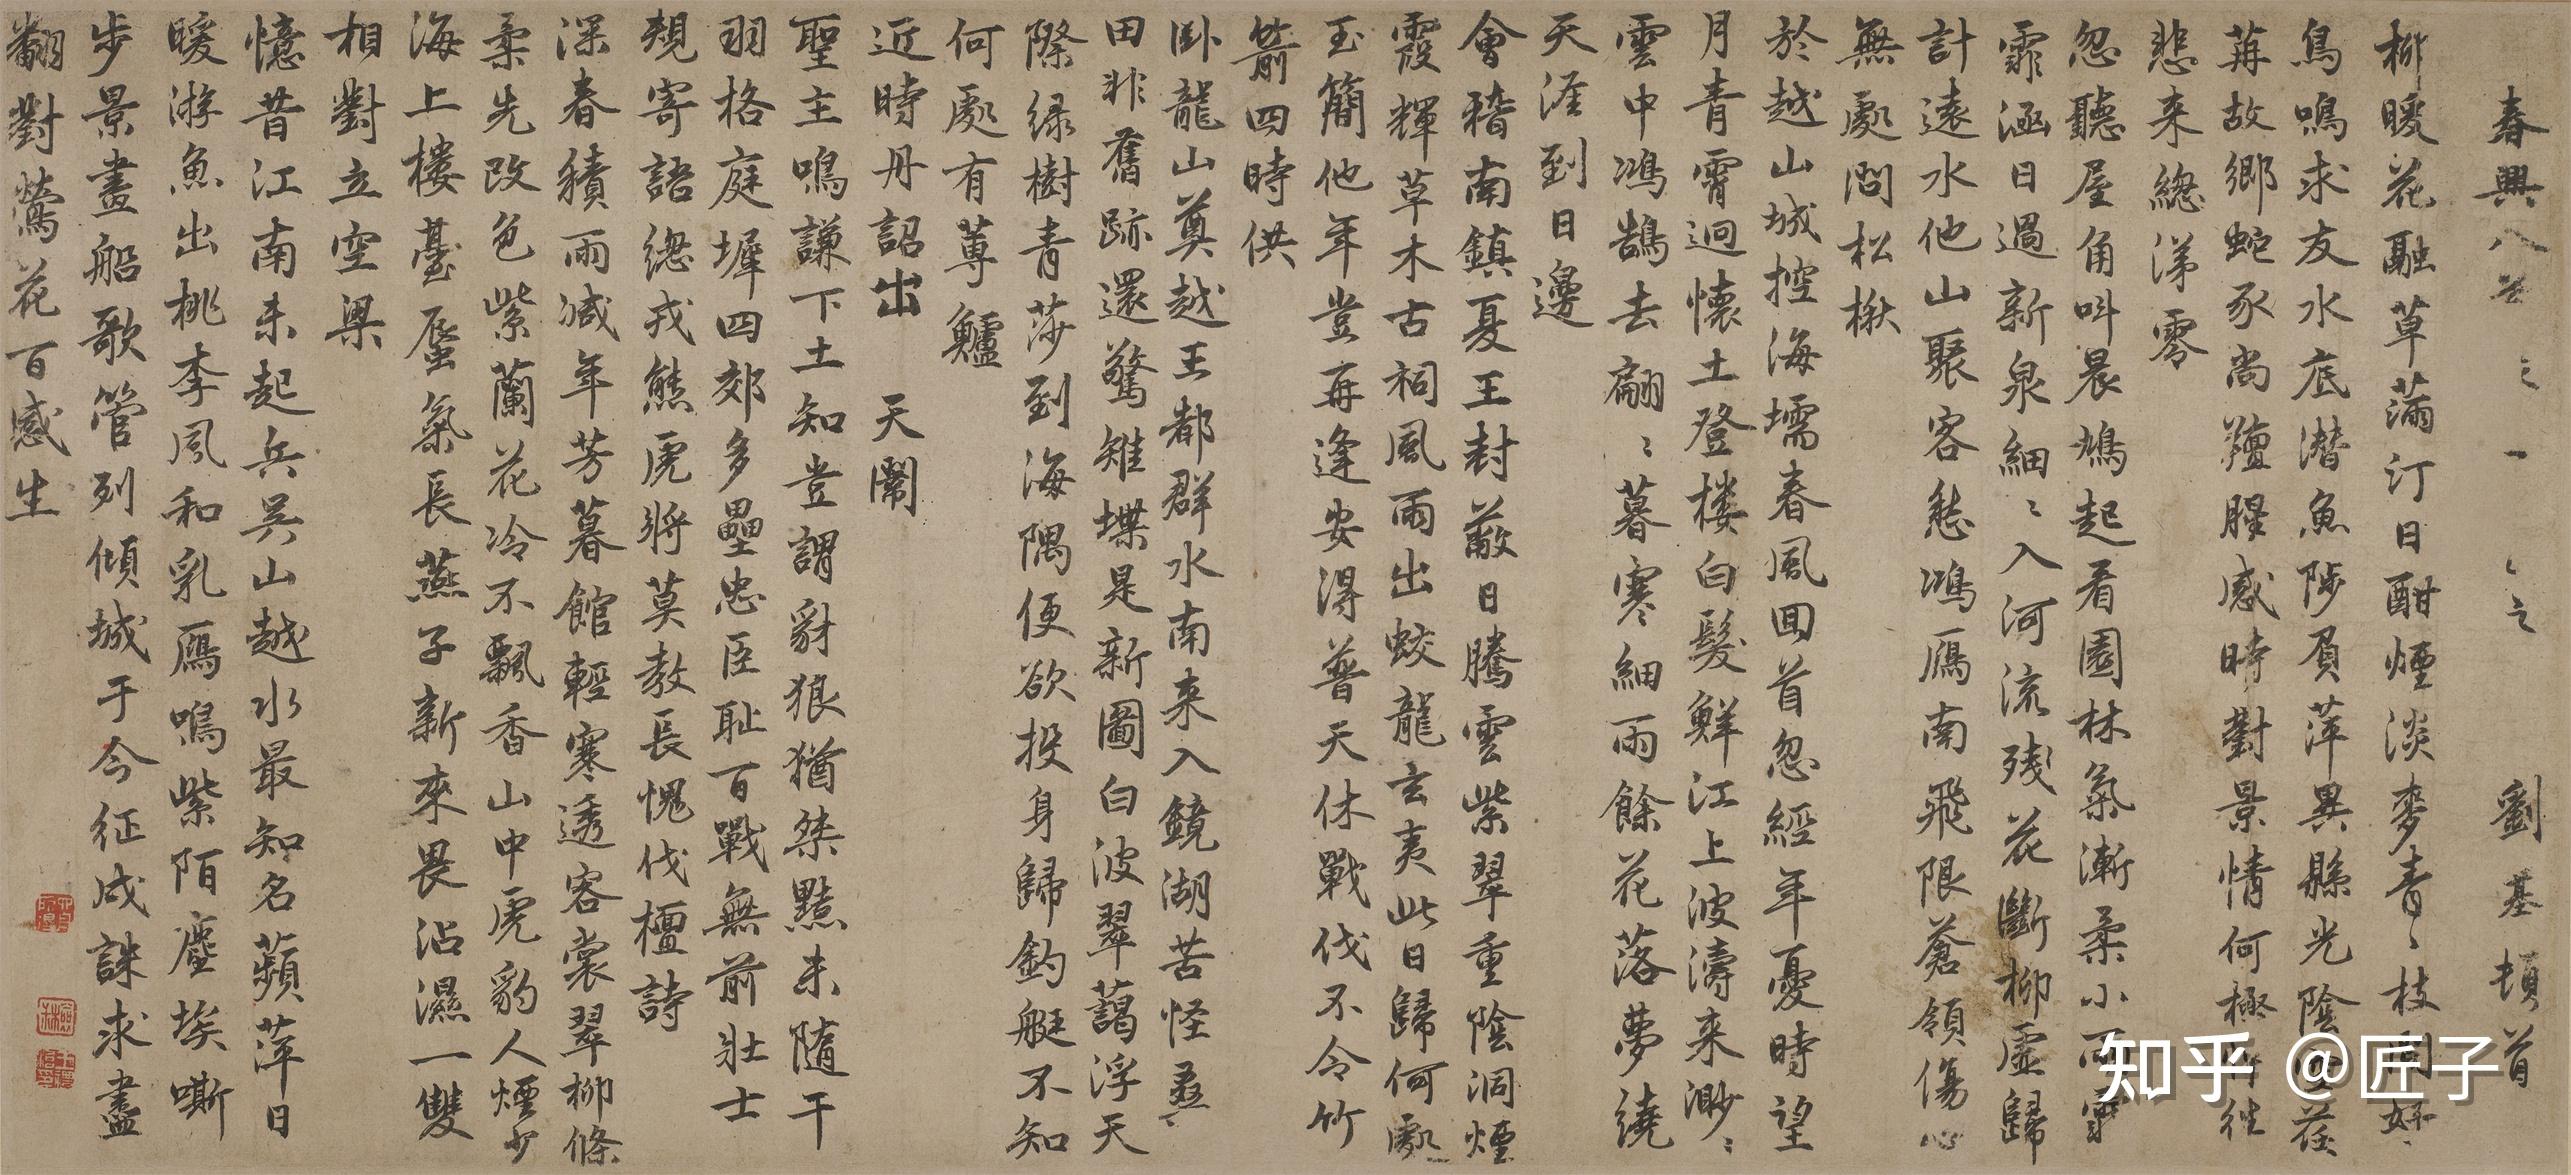 春興八首 劉基頓首
柳暖花融草滿汀日酣煙淡麥青〻枝間好
鳥鳴求友水底潛魚陟負萍異縣光陰空荏
苒故鄉蛇豕尚羶腥感時對景情何極往
悲来總涕零
忽聽屋角叫晨鳩起看園林氣漸柔小雨
霏涵日過新泉細〻入河流殘花斷柳虛歸
計遠水他山聚客愁鴻鴈南飛限蒼領傷心
無處問松楸
於越山城控海壖春風回首忽經年憂時望
月青霄迥懷土登樓白髮鮮江上波濤来渺〻
雲中鴻鵠去翩〻暮寒細雨餘花落夢繞
天涯到日邊
會稽南鎮夏王封蔽日騰雲紫翠重陰洞煙
霞輝草木古祠風雨出蛟龍玄夷此日歸何處
玉簡他年豈再逢安得普天休戰伐不令竹
箭四時供
卧龍山奠越王都群水南来入鏡湖苦怪桑
田非舊跡還驚雉堞是新圖白波翠藹浮天
際綠樹青莎到海隅便欲投身歸釣艇不知
何處有蓴鱸
近時丹詔出 天閽
聖主鳴謙下土知豈謂豺狼猶桀黠未隨干
羽格庭墀四郊多壘忠臣恥百戰無前壯士
規寄語總戎熊虎將莫教長愧伐檀詩
深春積雨減年芳暮館輕寒透客裳翠柳條
柔先改色紫蘭花冷不飄香山中虎豹人煙少
海上樓臺蜃氣長燕子新來畏沾濕一雙
相對立空梁
憶昔江南未起兵吳山越水最知名蘋萍日
暖游魚出桃李風和乳鴈鳴紫陌塵埃嘶
步景畫船歌管列傾城于今征戍誅求盡
翻對鶯花百感生
知乎 @匠子